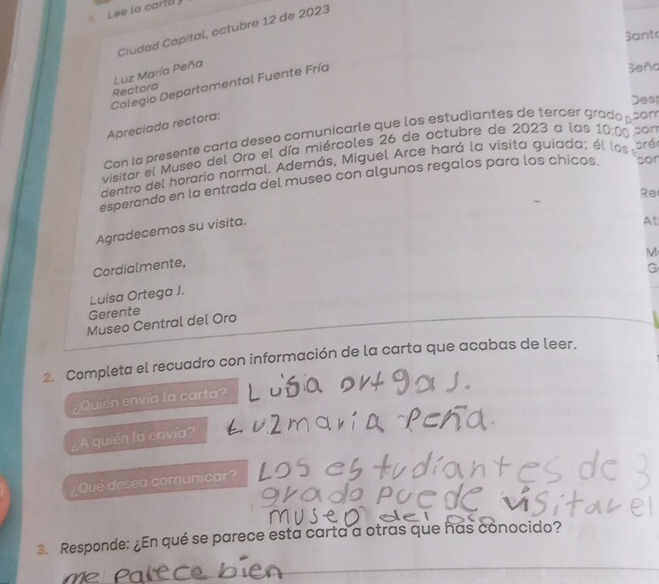 1. Lee la carta y
Ciudad Capital, octubre 12 de 2023
Luz María Peña
Rectora
Colegio Departamental Fuente Fría
Apreciada rectora:
Con la presente carta deseo comunicarle que los estudiantes de tercer grado
visitar el Museo del Oro el día miércoles 26 de octubre de 2023 a las 10:00
dentro del horario normal. Además, Miguel Arce hará la visita guiada; él los
esperando en la entrada del museo con algunos regalos para los chicos.
Agradecemos su visita.
Cordialmente,
Luisa Ortega J.
Gerente
Museo Central del Oro
2. Completa el recuadro con información de la carta que acabas de leer.
¿Quién envía la carta? Luisa ortga J.
¿A quién la envía? Luzmaría Peña.
¿Qué desea comunicar? Los estudiantes de 3
grado puede visitar el
museo del oro
3. Responde: ¿En qué se parece esta carta a otras que has conocido?
me parece bien
Sant
Seño
Desp
com
con
pré
cor
Re
At
M
G